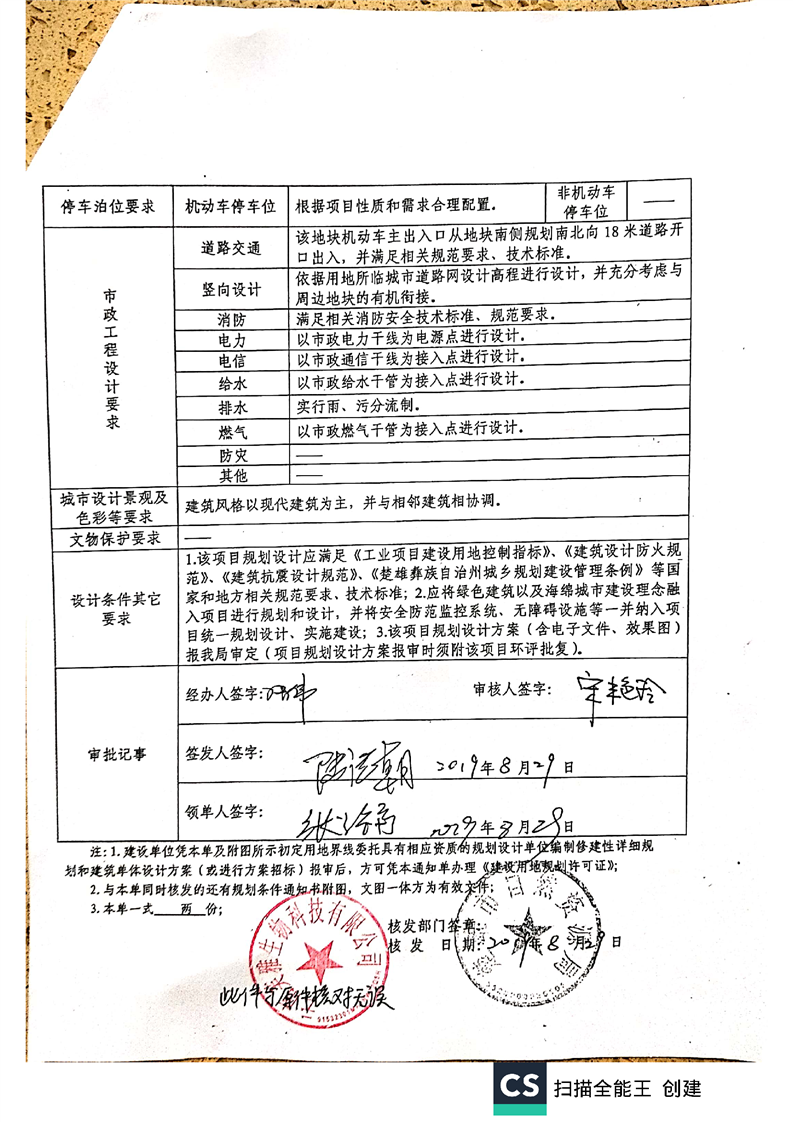 停车泊位要求 机动车停车位 根据项目性质和需求合理配置。 非机动车停车位 ——
市政工程设计要求
道路交通 该地块机动车主出入口从地块南侧规划南北向 18 米道路开
口出入，并满足相关规范要求、技术标准。
竖向设计 依据用地所临城市道路网设计高程进行设计，并充分考虑与
周边地块的有机衔接。
消防 满足相关消防安全技术标准、规范要求。
电力 以市政电力干线为电源点进行设计。
电信 以市政通信干线为接入点进行设计。
给水 以市政给水干管为接入点进行设计。
排水 实行雨、污分流制。
燃气 以市政燃气干管为接入点进行设计。
防灾 ——
其他 ——
城市设计景观及
色彩等要求 建筑风格以现代建筑为主，并与相邻建筑相协调。
文物保护要求 ——
设计条件其它
要求
1.该项目规划设计应满足《工业项目建设用地控制指标》、《建筑设计防火规
范》、《建筑抗震设计规范》、《楚雄彝族自治州城乡规划建设管理条例》等国
家和地方相关规范要求、技术标准；2.应将绿色建筑以及海绵城市建设理念融
入项目进行规划和设计，并将安全防范监控系统、无障碍设施等一并纳入项
目统一规划设计、实施建设；3.该项目规划设计方案（含电子文件、效果图）
报我局审定（项目规划设计方案报审时须附该项目环评批复）。
审批记事
经办人签字： 审核人签字：宋艳玲
签发人签字： 2019年8月29日
领单人签字： 年8月29日
注：1.建设单位凭本单及附图所示初定用地界线委托具有相应资质的规划设计单位编制修建性详细规
划和建筑单体设计方案（或进行方案招标）报审后，方可凭本通知单办理《建设用地规划许可证》；
2.与本单同时核发的还有规划条件通知书附图，文图一体方为有效文件；
3.本单一式 两 份；
核发部门签章：
核 发 日 期：2019年8月29日
市自然资源局
生物科技有限公司
此件与原件核对无误
CS 扫描全能王 创建